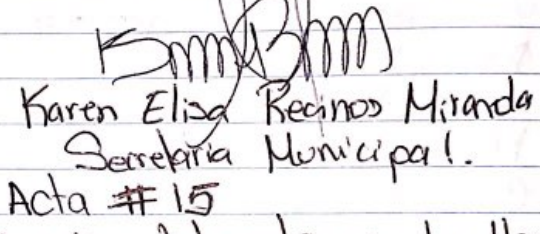 Karen Elisa Recinos Miranda
Secretaria Municipal.
Acta # 15